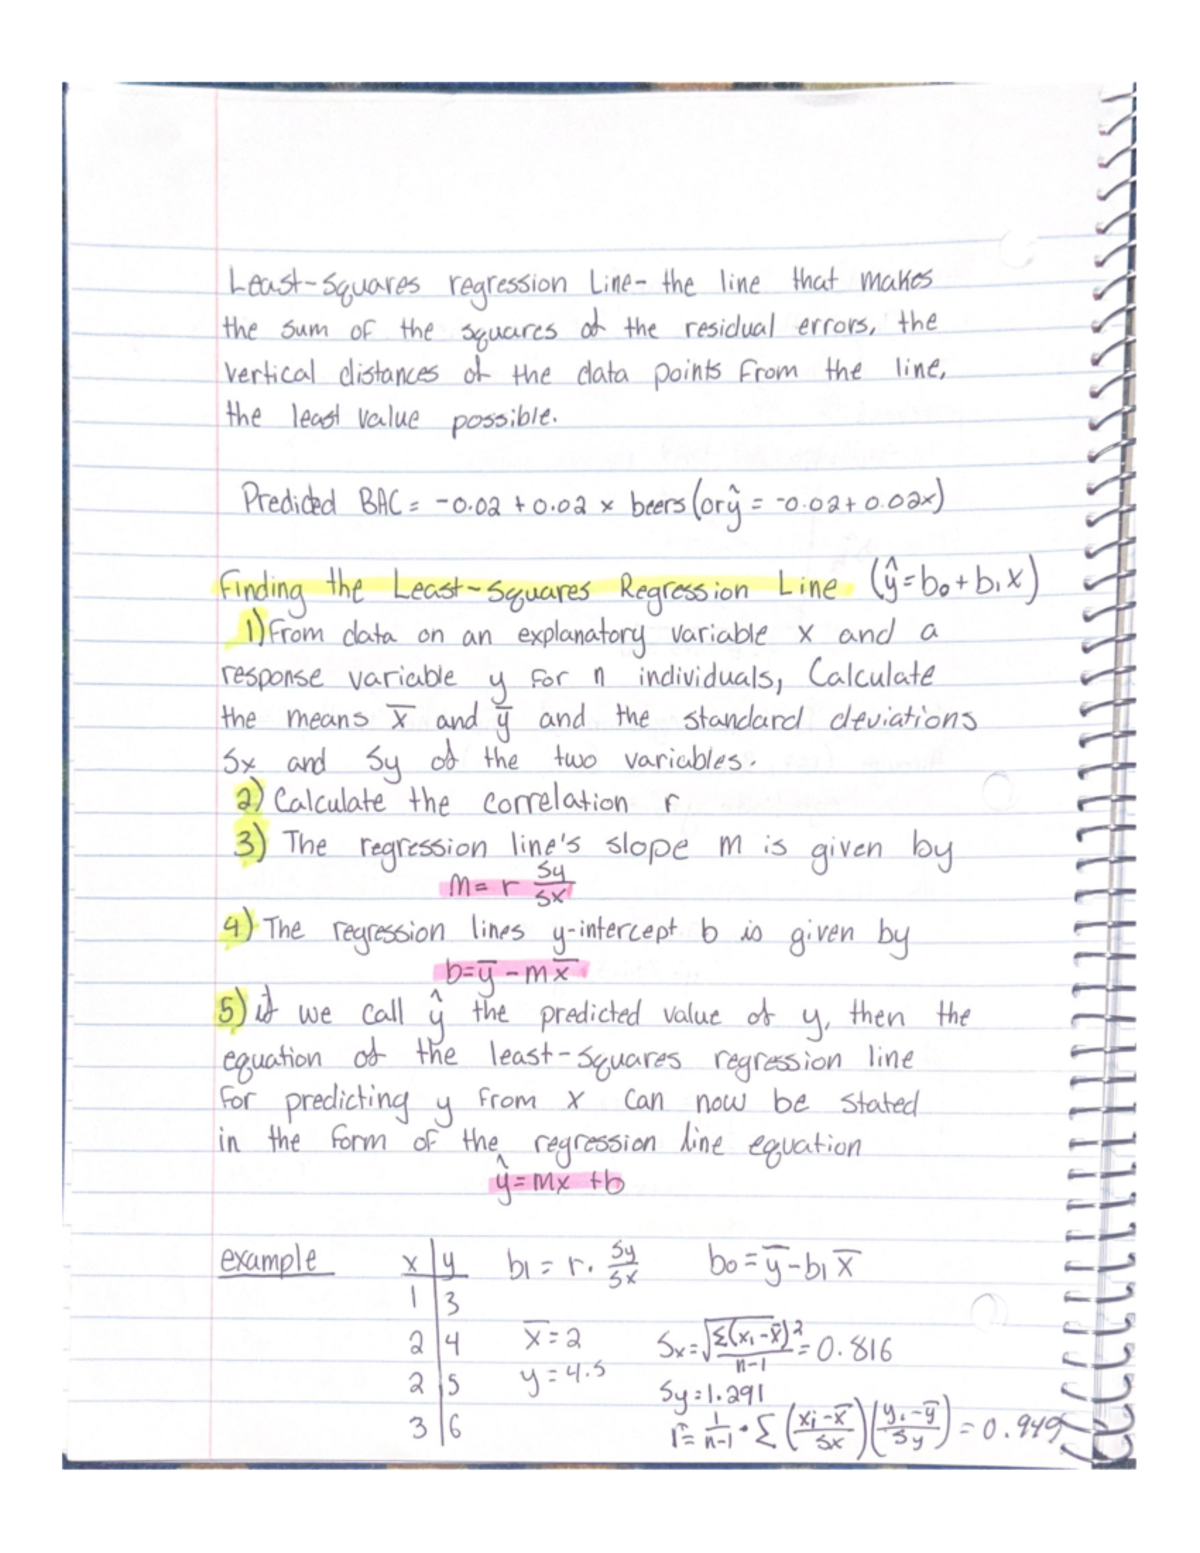 Least-Squares regression Line- the line that makes
the sum of the squares of the residual errors, the
vertical distances of the data points from the line,
the least value possible.
Predicted BAC = -0.02 + 0.02 x beers (or ŷ = -0.02 + 0.02x)
Finding the Least-Squares Regression Line (ŷ = b₀ + b₁x)
1) From data on an explanatory variable x and a
response variable y for n individuals, Calculate
the means x̅ and y̅ and the standard deviations
Sx and Sy of the two variables.
2) Calculate the correlation r
3) The regression line's slope m is given by
m = r Sy/Sx
4) The regression lines y-intercept b is given by
b = y̅ - mx̅
5) if we call ŷ the predicted value of y, then the
equation of the least-squares regression line
for predicting y from x can now be stated
in the form of the regression line equation
ŷ = mx + b
example x | y b₁ = r · Sy/Sx b₀ = y̅ - b₁x̅
1 | 3
2 | 4 x̅ = 2 Sx = √Σ(x₁ - x̅)²/n-1 = 0.816
2 | 5 y = 4.5 Sy = 1.291
3 | 6 r = 1/n-1 · Σ (xi - x̅/Sx) (yi - y̅/Sy) = 0.949